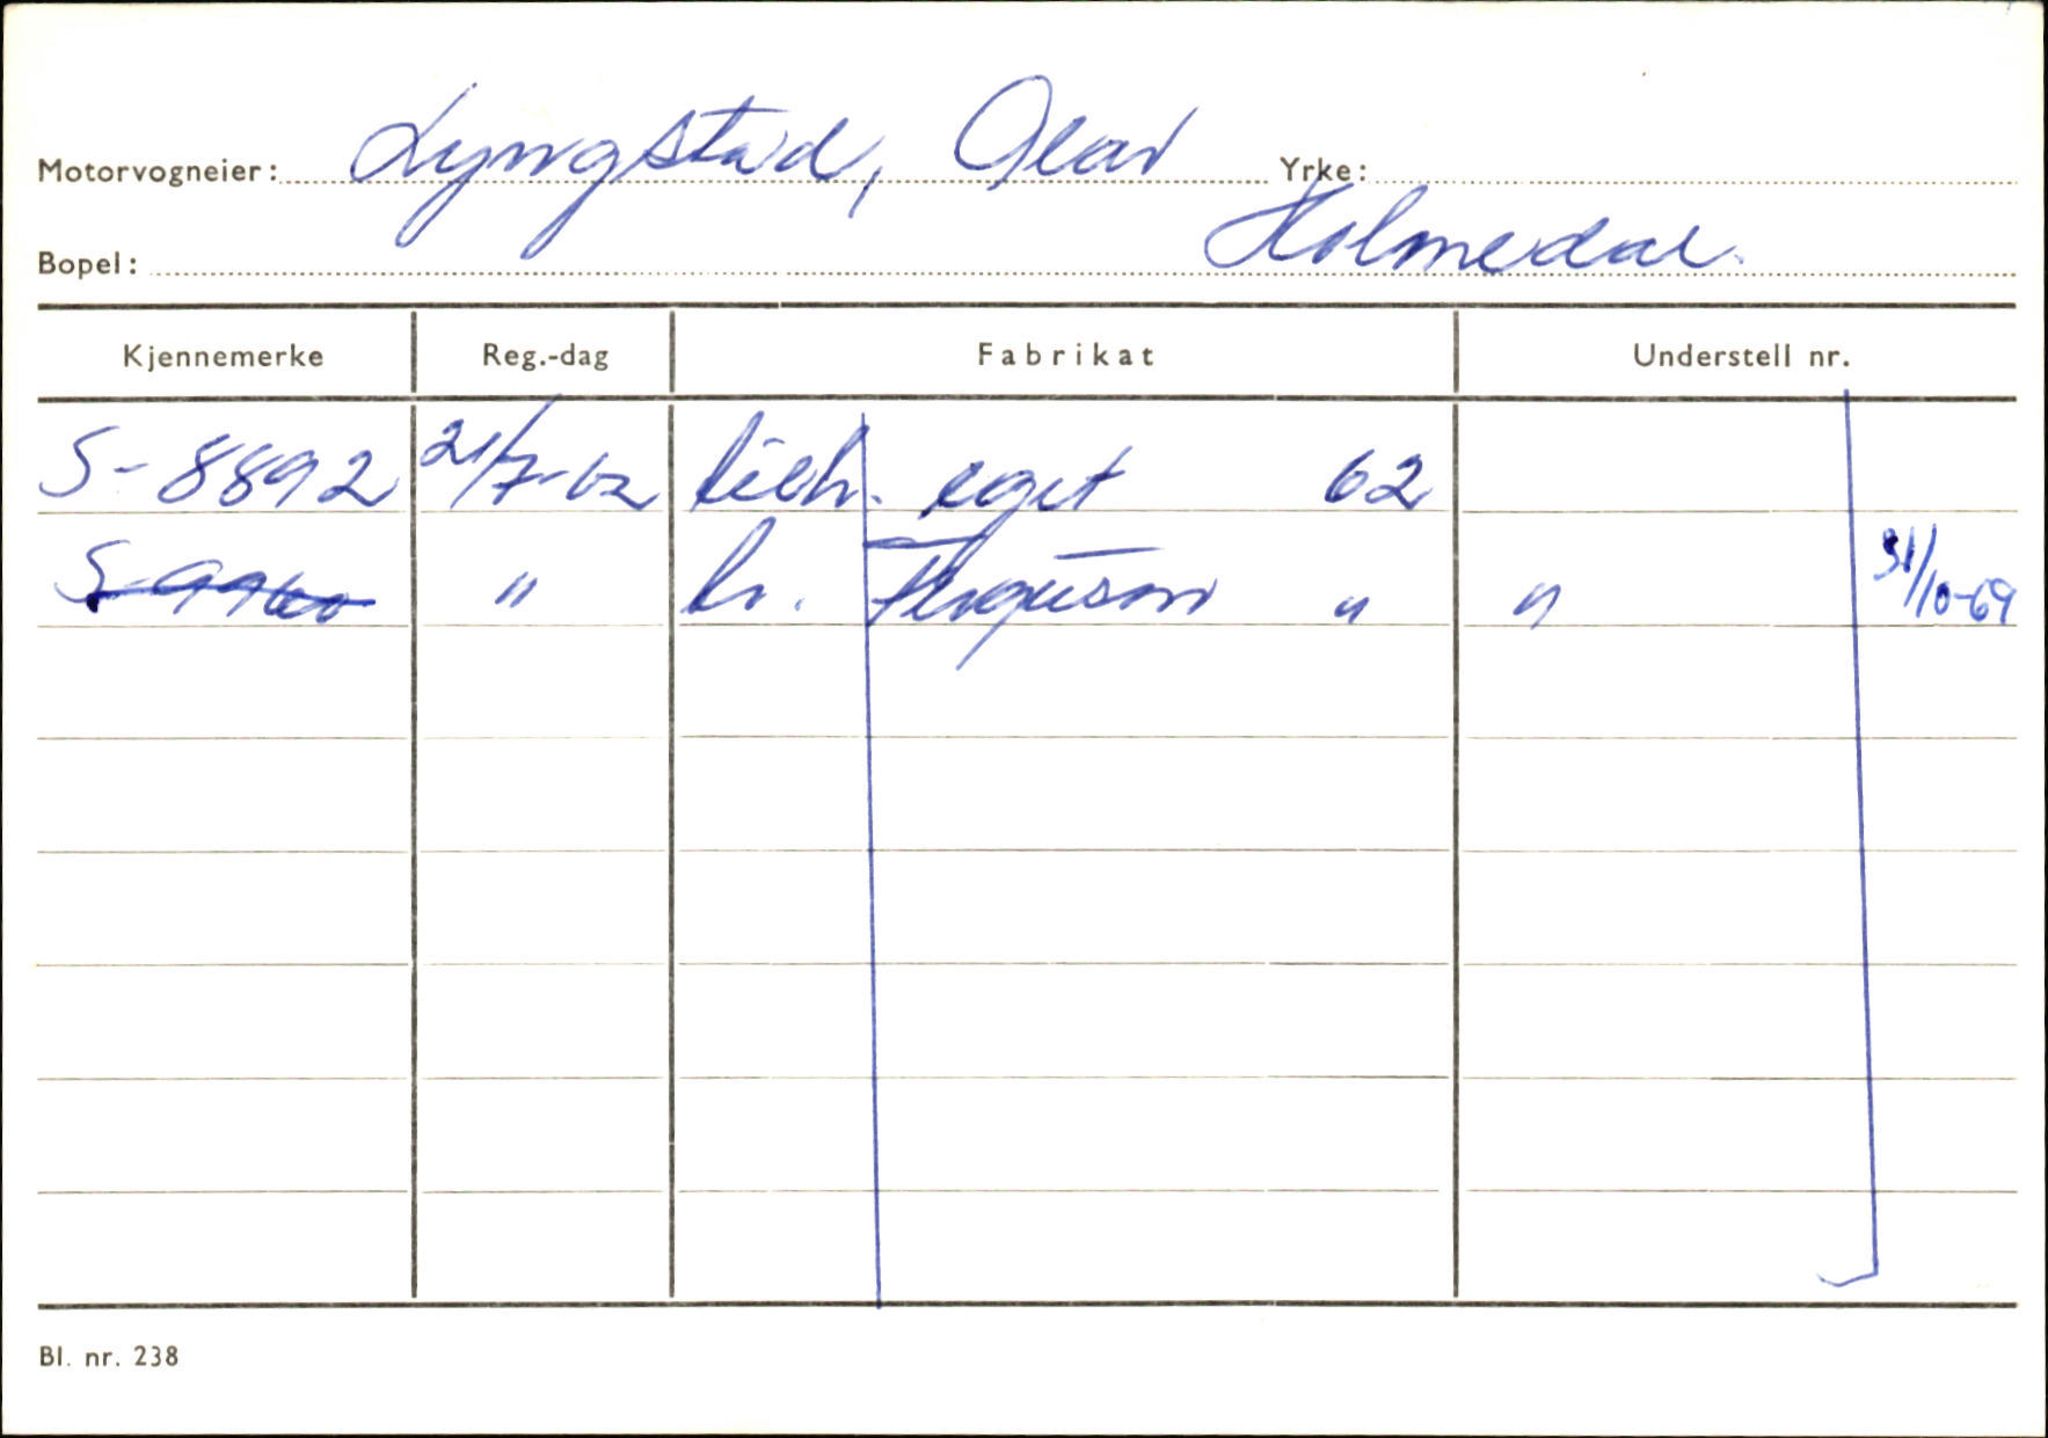 Motorvogneier: Lyngstad, Olav Yrke:
Bopel: Holmedal.
Kjennemerke Reg.-dag Fabrikat Understell nr.
S-8892 21/7-62 tilh. eget 62
S-9960 " tr. Ferguson " " 31/10-69
Bl. nr. 238